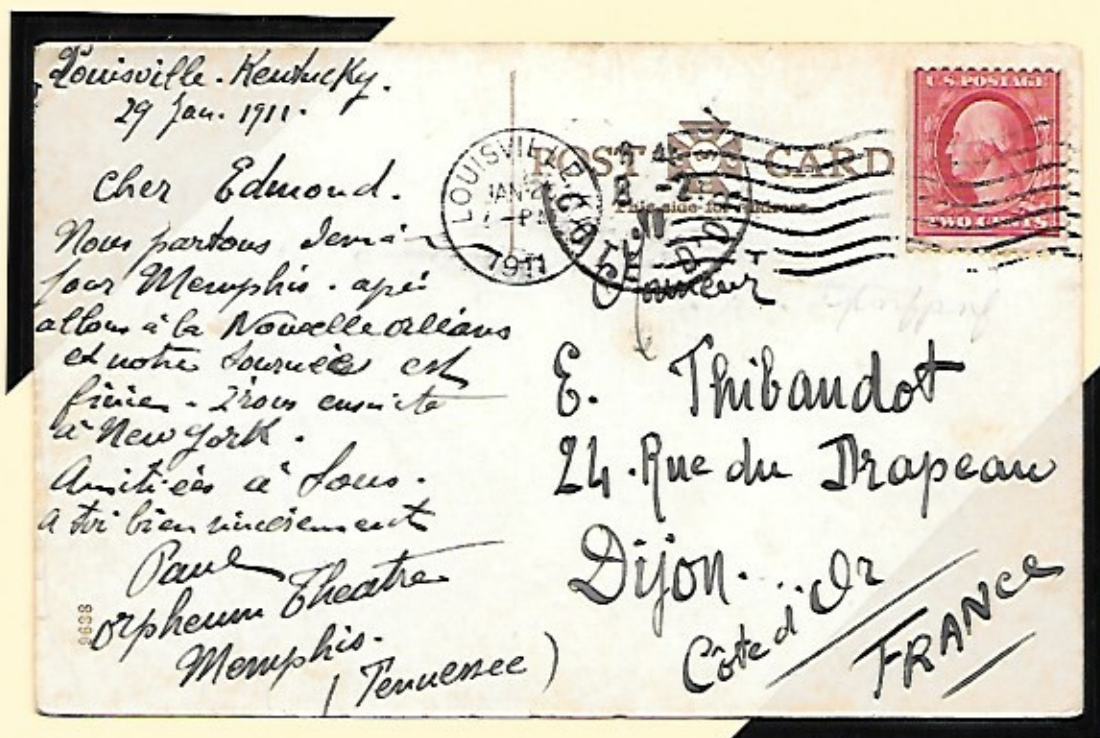 Louisville. Kentucky.
29 Jan. 1911.
Cher Edmond.
Nous partons
pour Memphis. apè
allons à la Nouvelle orléans
et notre tournées est
finie. Irons ensuite
à New York.
Amitiées à tous.
a toi bien sincèrement
Paul
orpheum Theatre
Memphis.
(Tennessee)
9638
POST CARD
This side for address
LOUISVILLE
JAN
1911
CÔTE D'OR
U.S. POSTAGE
TWO CENTS
Monsieur
E. Thibaudot
24. Rue du Drapeau
Dijon.
Côte d'Or
FRANCE